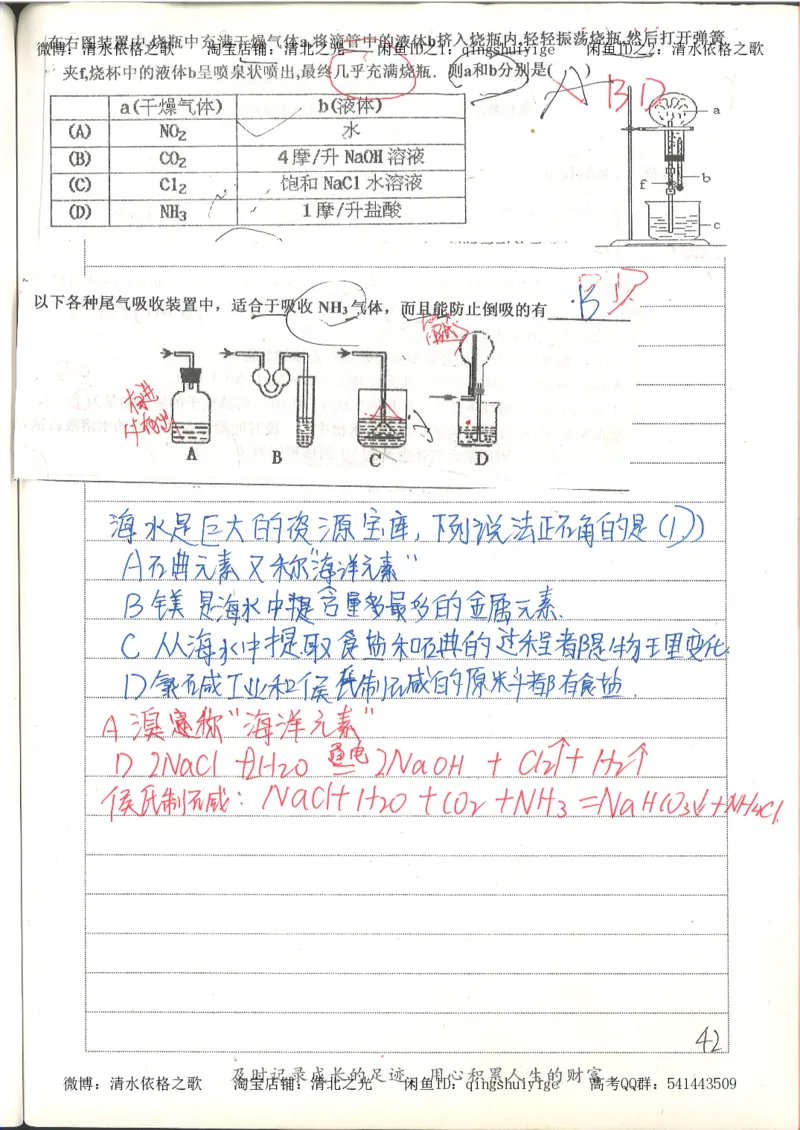 在右图装置中,烧瓶中充满干燥气体a,将滴管中的液体b挤入烧瓶内,轻轻振荡烧瓶,然后打开弹簧
微博：清水依格之歌 淘宝店铺：清北之光 闲鱼ID之1：qingshuiyige 闲鱼ID之2：清水依格之歌
夹f,烧杯中的液体b呈喷泉状喷出,最终几乎充满烧瓶．则a和b分别是( )
A BD
a(干燥气体) b(液体)
(A) NO₂ 水
(B) CO₂ 4摩/升NaOH溶液
(C) Cl₂ 饱和NaCl水溶液
(D) NH₃ 1摩/升盐酸
a
b
f
c
以下各种尾气吸收装置中，适合于吸收 NH₃ 气体，而且能防止倒吸的有 BD
A B C D
海水是巨大的资源宝库，下列说法正确的是（D）
A 碘元素又称“海洋元素”
B 镁是海水中提含量多最多的金属元素.
C 从海水中提取食盐和碘的过程都是物理变化.
D 氯碱工业和侯氏制碱的原料都有食盐.
A 溴 称“海洋元素”
D 2NaCl + 2H₂O 通电 = 2NaOH + Cl₂↑ + H₂↑
侯氏制碱：NaCl + H₂O + CO₂ + NH₃ = NaHCO₃↓ + NH₄Cl.
42
及时记录成长的足迹 用心积累人生的财富
微博：清水依格之歌 淘宝店铺：清北之光 闲鱼ID：qingshuiyige 高考QQ群：541443509